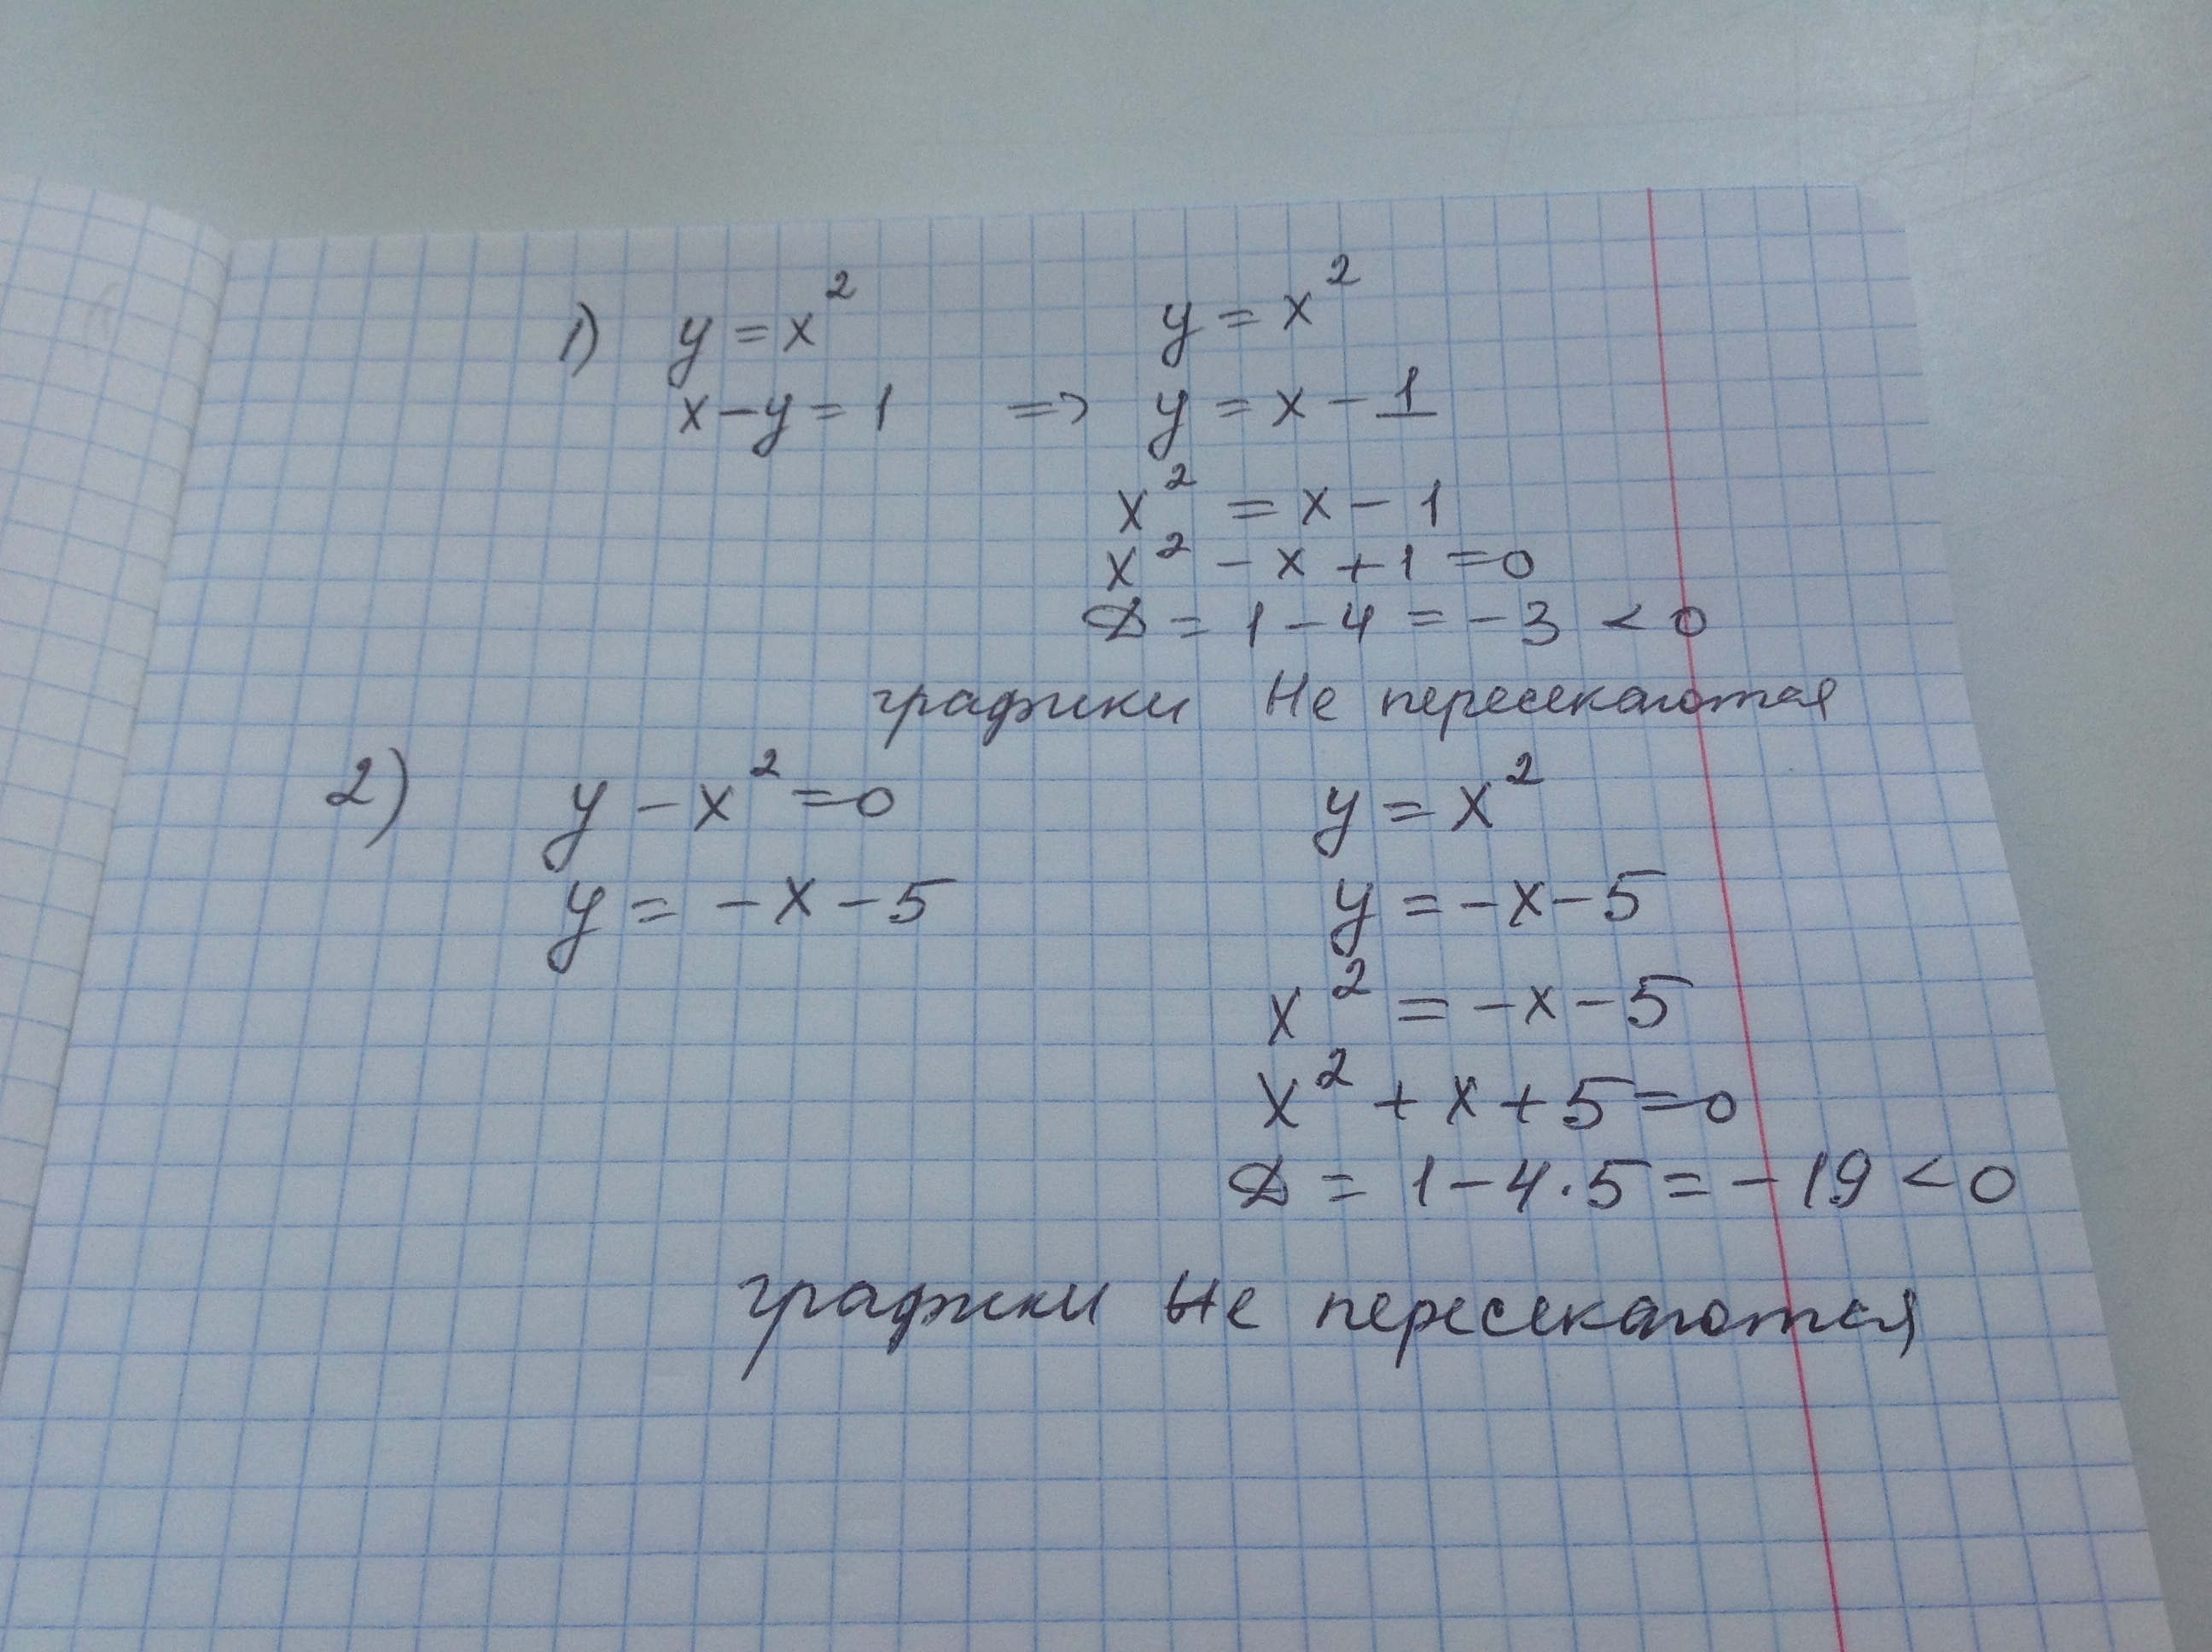 1) y = x² y = x²
x - y = 1 => y = x - 1
x² = x - 1
x² - x + 1 = 0
D = 1 - 4 = -3 < 0
графики не пересекаются
2) y - x² = 0 y = x²
y = -x - 5 y = -x - 5
x² = -x - 5
x² + x + 5 = 0
D = 1 - 4 · 5 = -19 < 0
графики не пересекаются